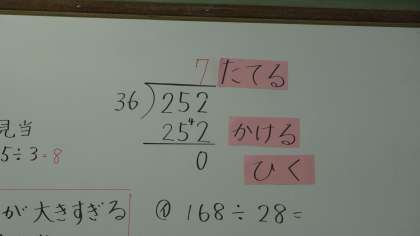 7 たてる
36)252
252 かける
4
0
ひく
見当
5÷3=8
が大きすぎる
㋑ 168÷28=